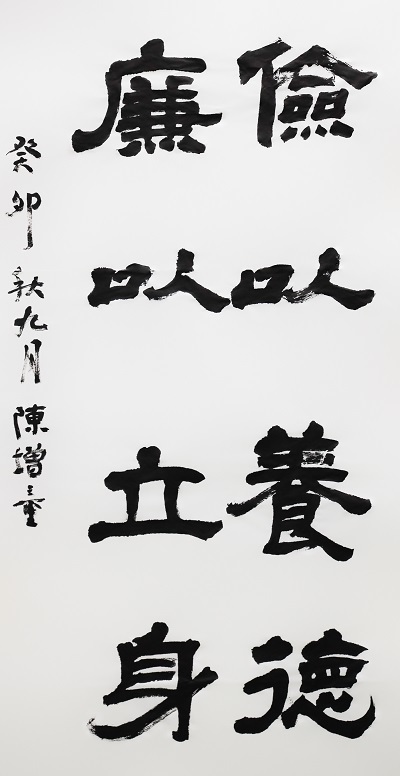 儉以養德
廉以立身
癸卯秋九月陳增